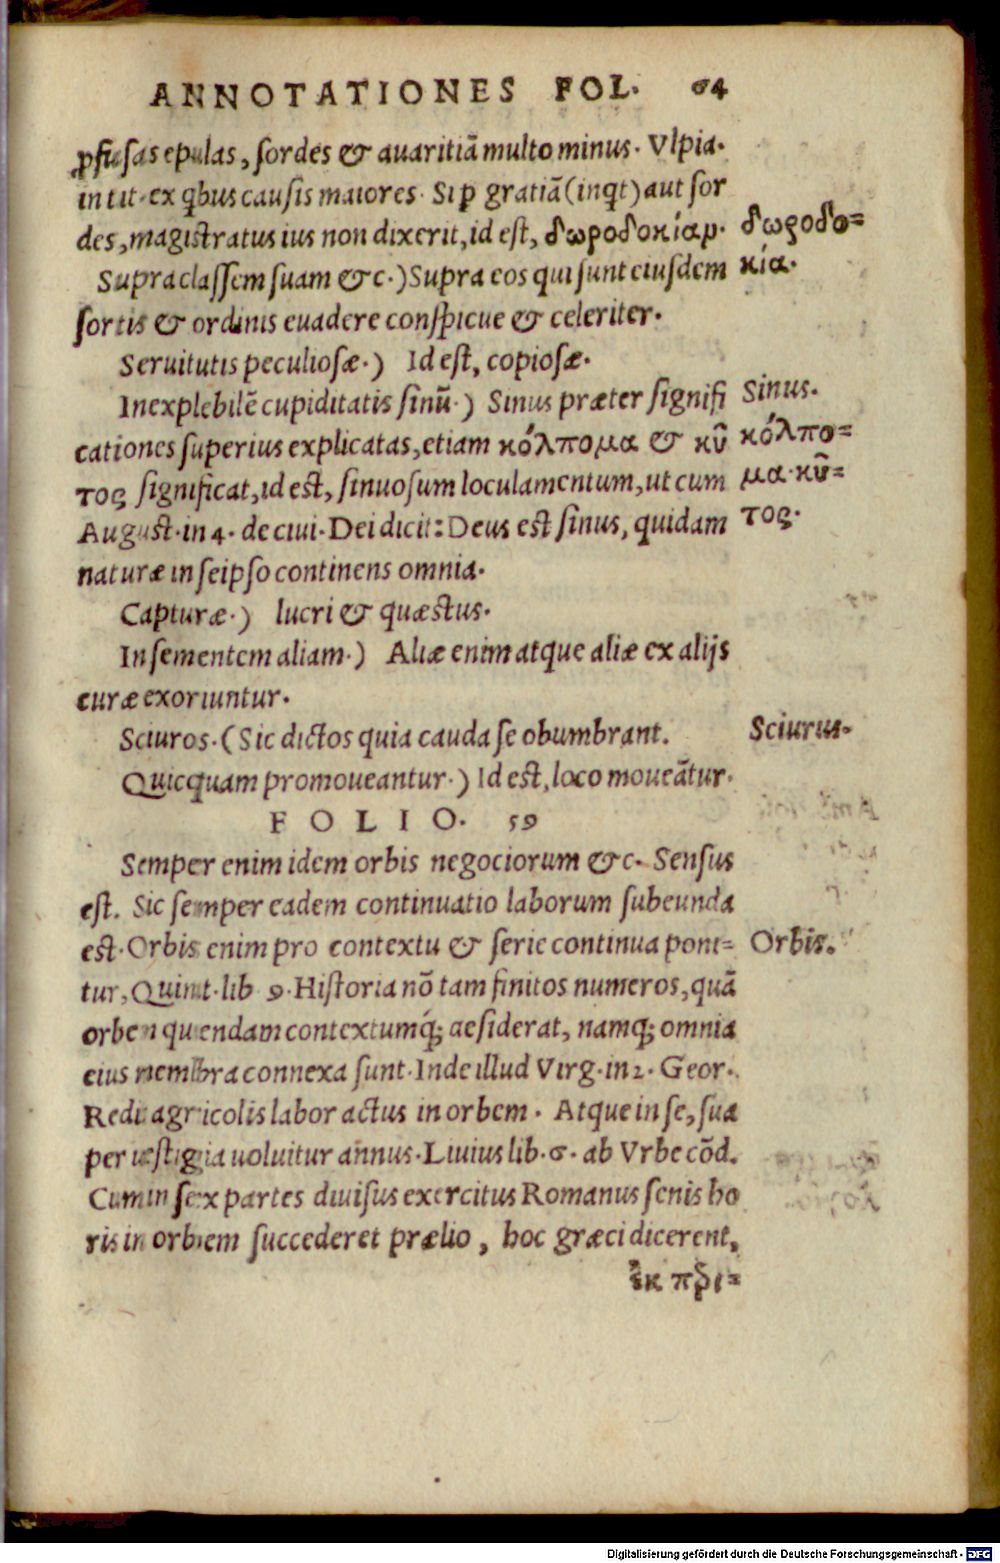 ANNOTATIONES FOL. 64
ꝓfusas epulas, sordes & auaritiã multo minus. Vlpia.
in tit. ex qbus causis maiores. Si ꝑ gratiã (inqt) aut sor
des, magistratus ius non dixerit, id est, δωροδοκίαμ.
δωροδο=
κία.
Supra classem suam &c.) Supra eos qui sunt eiusdem
sortis & ordinis euadere conspicue & celeriter.
Seruitutis peculiosæ.) Id est, copiosæ.
Inexplebilẽ cupiditatis sinũ.) Sinus præter signifi
Sinus.
cationes superius explicatas, etiam κόλπομα & κῦ
κόλπο=
τος significat, id est, sinuosum loculamentum, ut cum
μα. κῦ=
August. in 4. de ciui. Dei dicit: Deus est sinus, quidam
τος.
naturæ in seipso continens omnia.
Capturæ.) lucri & quæstus.
In sementem aliam.) Aliæ enim atque aliæ ex alijs
curæ exoriuntur.
Sciuros. (Sic dictos quia cauda se obumbrant.
Sciurus.
Quicquam promoueantur.) Id est, loco moueãtur.
FOLIO. 59
Semper enim idem orbis negociorum &c. Sensus
est. Sic semper eadem continuatio laborum subeunda
est. Orbis enim pro contextu & serie continua poni=
Orbis.
tur, Quint. lib 9. Historia nõ tam finitos numeros, quã
orben quendam contextumq́; desiderat, namq; omnia
eius membra connexa sunt. Inde illud Virg. in 2. Geor.
Redit agricolis labor actus in orbem. Atque in se, sua
per uestigia uoluitur annus. Liuius lib. 6. ab Vrbe cõd.
Cum in sex partes diuisus exercitus Romanus senis ho
ris in orbem succederet prælio, hoc græci dicerent,
ἐκ πδι=
Digitalisierung gefördert durch die Deutsche Forschungsgemeinschaft - DFG